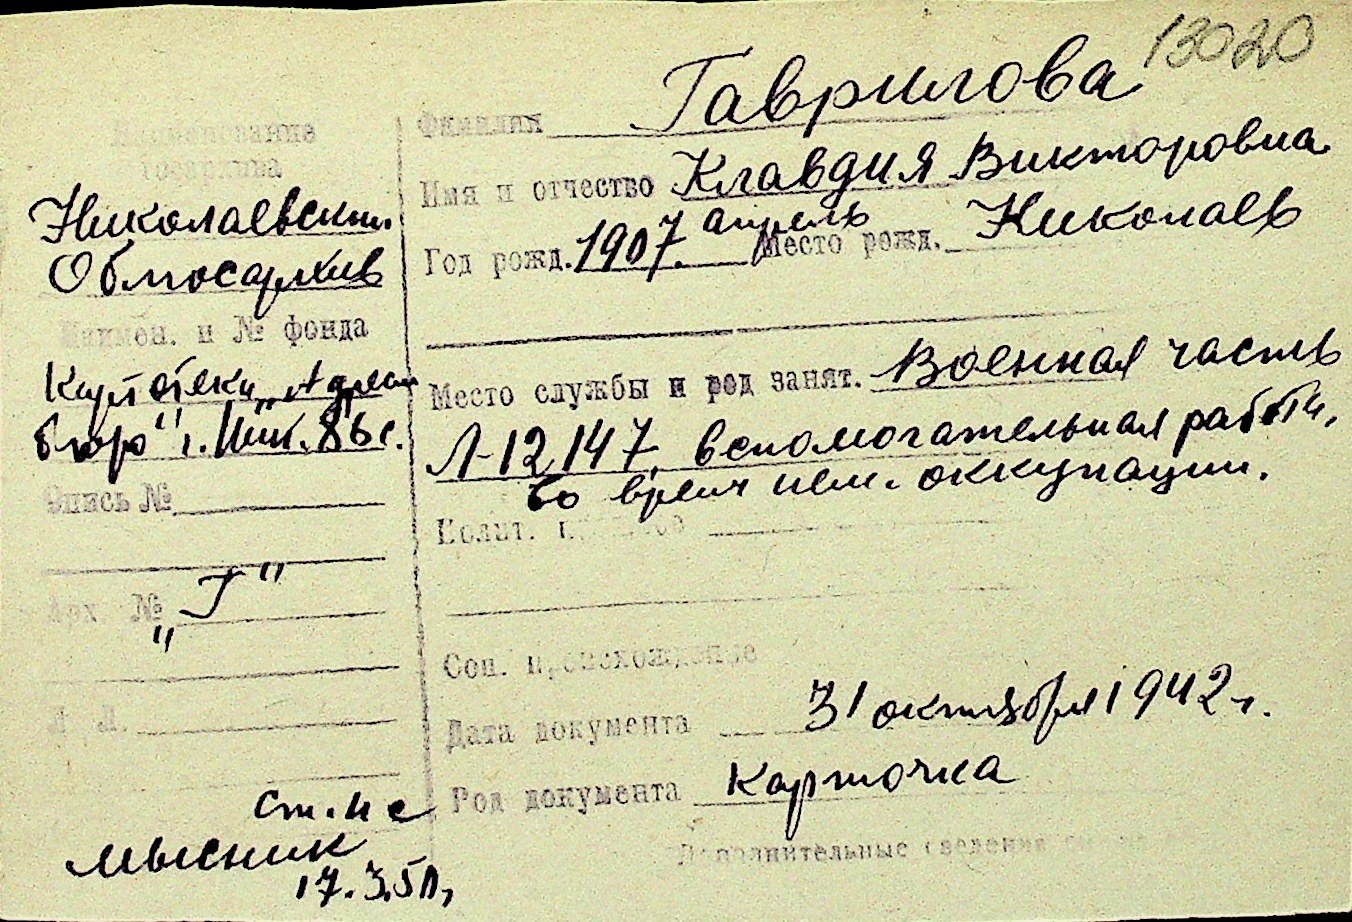 13020
Наименование
Госархива
Николаевский
Облгосархив
Наимен. и № фонда
Картотека „Адресн
бюро"
Опись №
Арх. № „Г"
Л. Л.
ст. н с
Мысник
17.3.50,
Фамилия Гаврилова
Имя и отчество Клавдия Викторовна
Год рожд. 1907. апрель Место рожд. Николаев
Место службы и род занят. Военная часть
Л-12147, вспомогательная работн,
во время нем. оккупации.
Полит. прошлое
Соц. происхождение
Дата документа 31 октября 1942 г.
Род документа Карточка
Дополнительные сведения